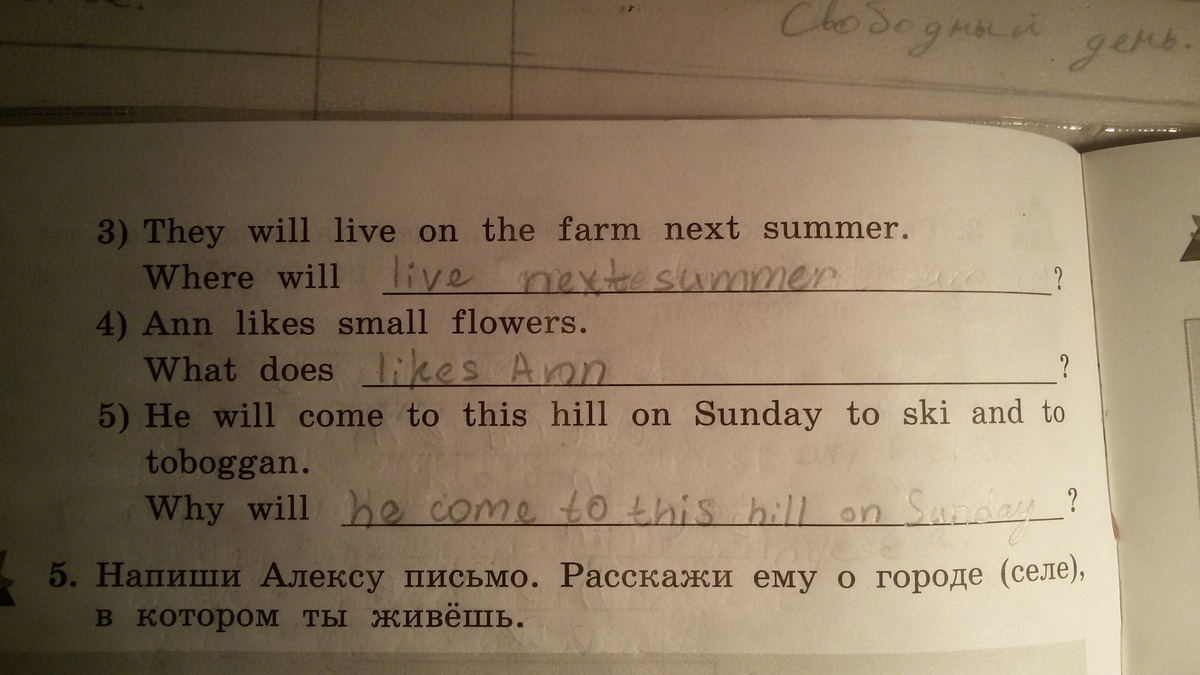 Свободный день.
3) They will live on the farm next summer.
Where will live next summer ?
4) Ann likes small flowers.
What does likes Ann ?
5) He will come to this hill on Sunday to ski and to
toboggan.
Why will he come to this hill on Sunday ?
5. Напиши Алексу письмо. Расскажи ему о городе (селе),
в котором ты живёшь.